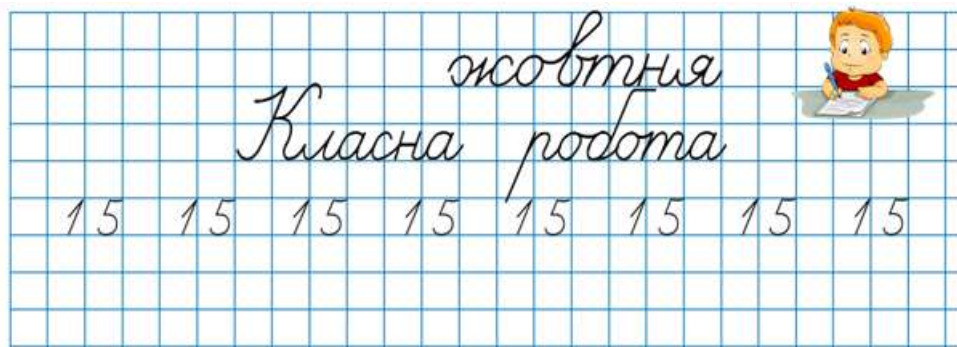 жовтня
Класна робота
15 15 15 15 15 15 15 15